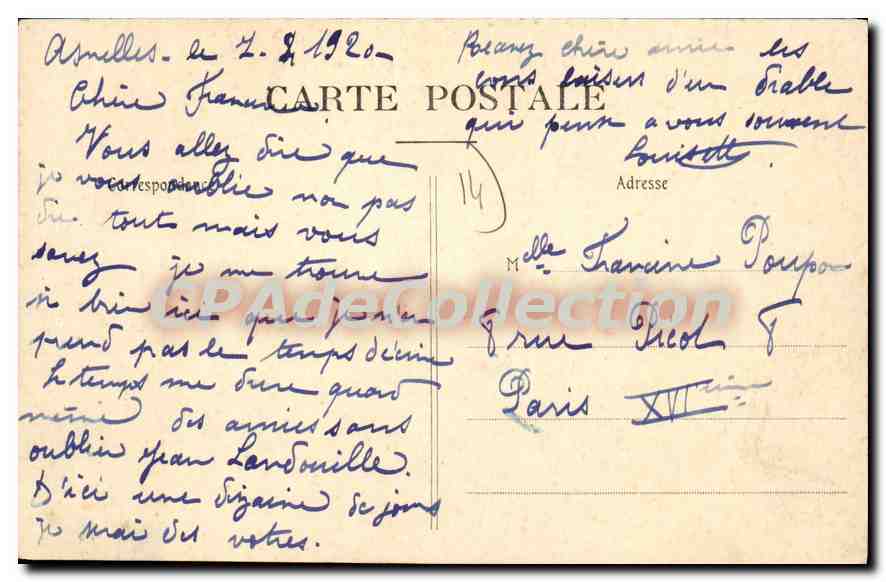 Asnelles - le 7-8 1920-
Chère Francine
CARTE POSTALE
Vous allez dire que
je vous oublie non pas
Correspondance
du tout mais vous
savez je me trouve
si bien ici que je ne
prend pas le temps d'écrire
le temps me dure quand
même des amies sans
oublier Jean Landouille.
D'ici une dizaine de jours
je serai des votres.
Recevez chère amie les
bons baisers d'un diable
qui pense a vous souvent
Louisette.
14
Adresse
Melle Francine Poupon
8 rue Picot 8
Paris XVIeme
CPAdeCollection.com